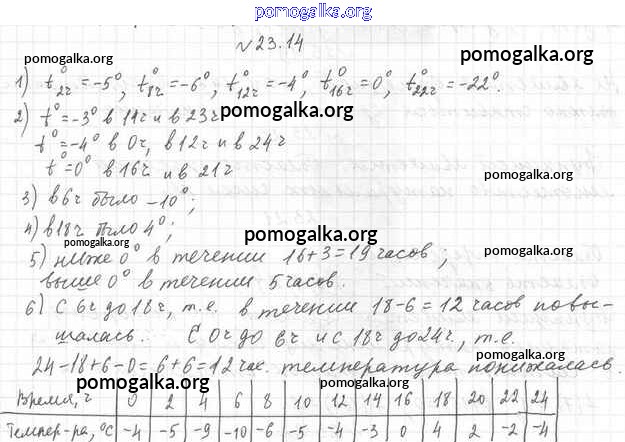 pomogalka.org
№ 23.14
pomogalka.org pomogalka.org
1) t°2ч = -5°, t°8ч = -6°, t°12ч = -4°, t°16ч = 0°, t°22ч = -22°.
2) t° = -3° в 14ч и в 23ч pomogalka.org
t° = -4° в 0ч, в 12ч и в 24ч
t° = 0° в 16ч и в 21ч
pomogalka.org
3) в 6ч было -10°;
4) в 18ч было 4°;
pomogalka.org pomogalka.org
5) ниже 0° в течении 16+3=19 часов; pomogalka.org
выше 0° в течении 5 часов.
6) С 6ч до 18ч, т.е. в течении 18-6=12 часов повы-
шалась. С 0ч до 6ч и с 18ч до 24ч, т.е.
24-18+6-0=6+6=12 час. температура понижалась.
pomogalka.org pomogalka.org pomogalka.org
Время, ч 0 2 4 6 8 10 12 14 16 18 20 22 24
Темпер-ра, °С -4 -5 -9 -10 -6 -5 -4 -3 0 4 2 -2 -4